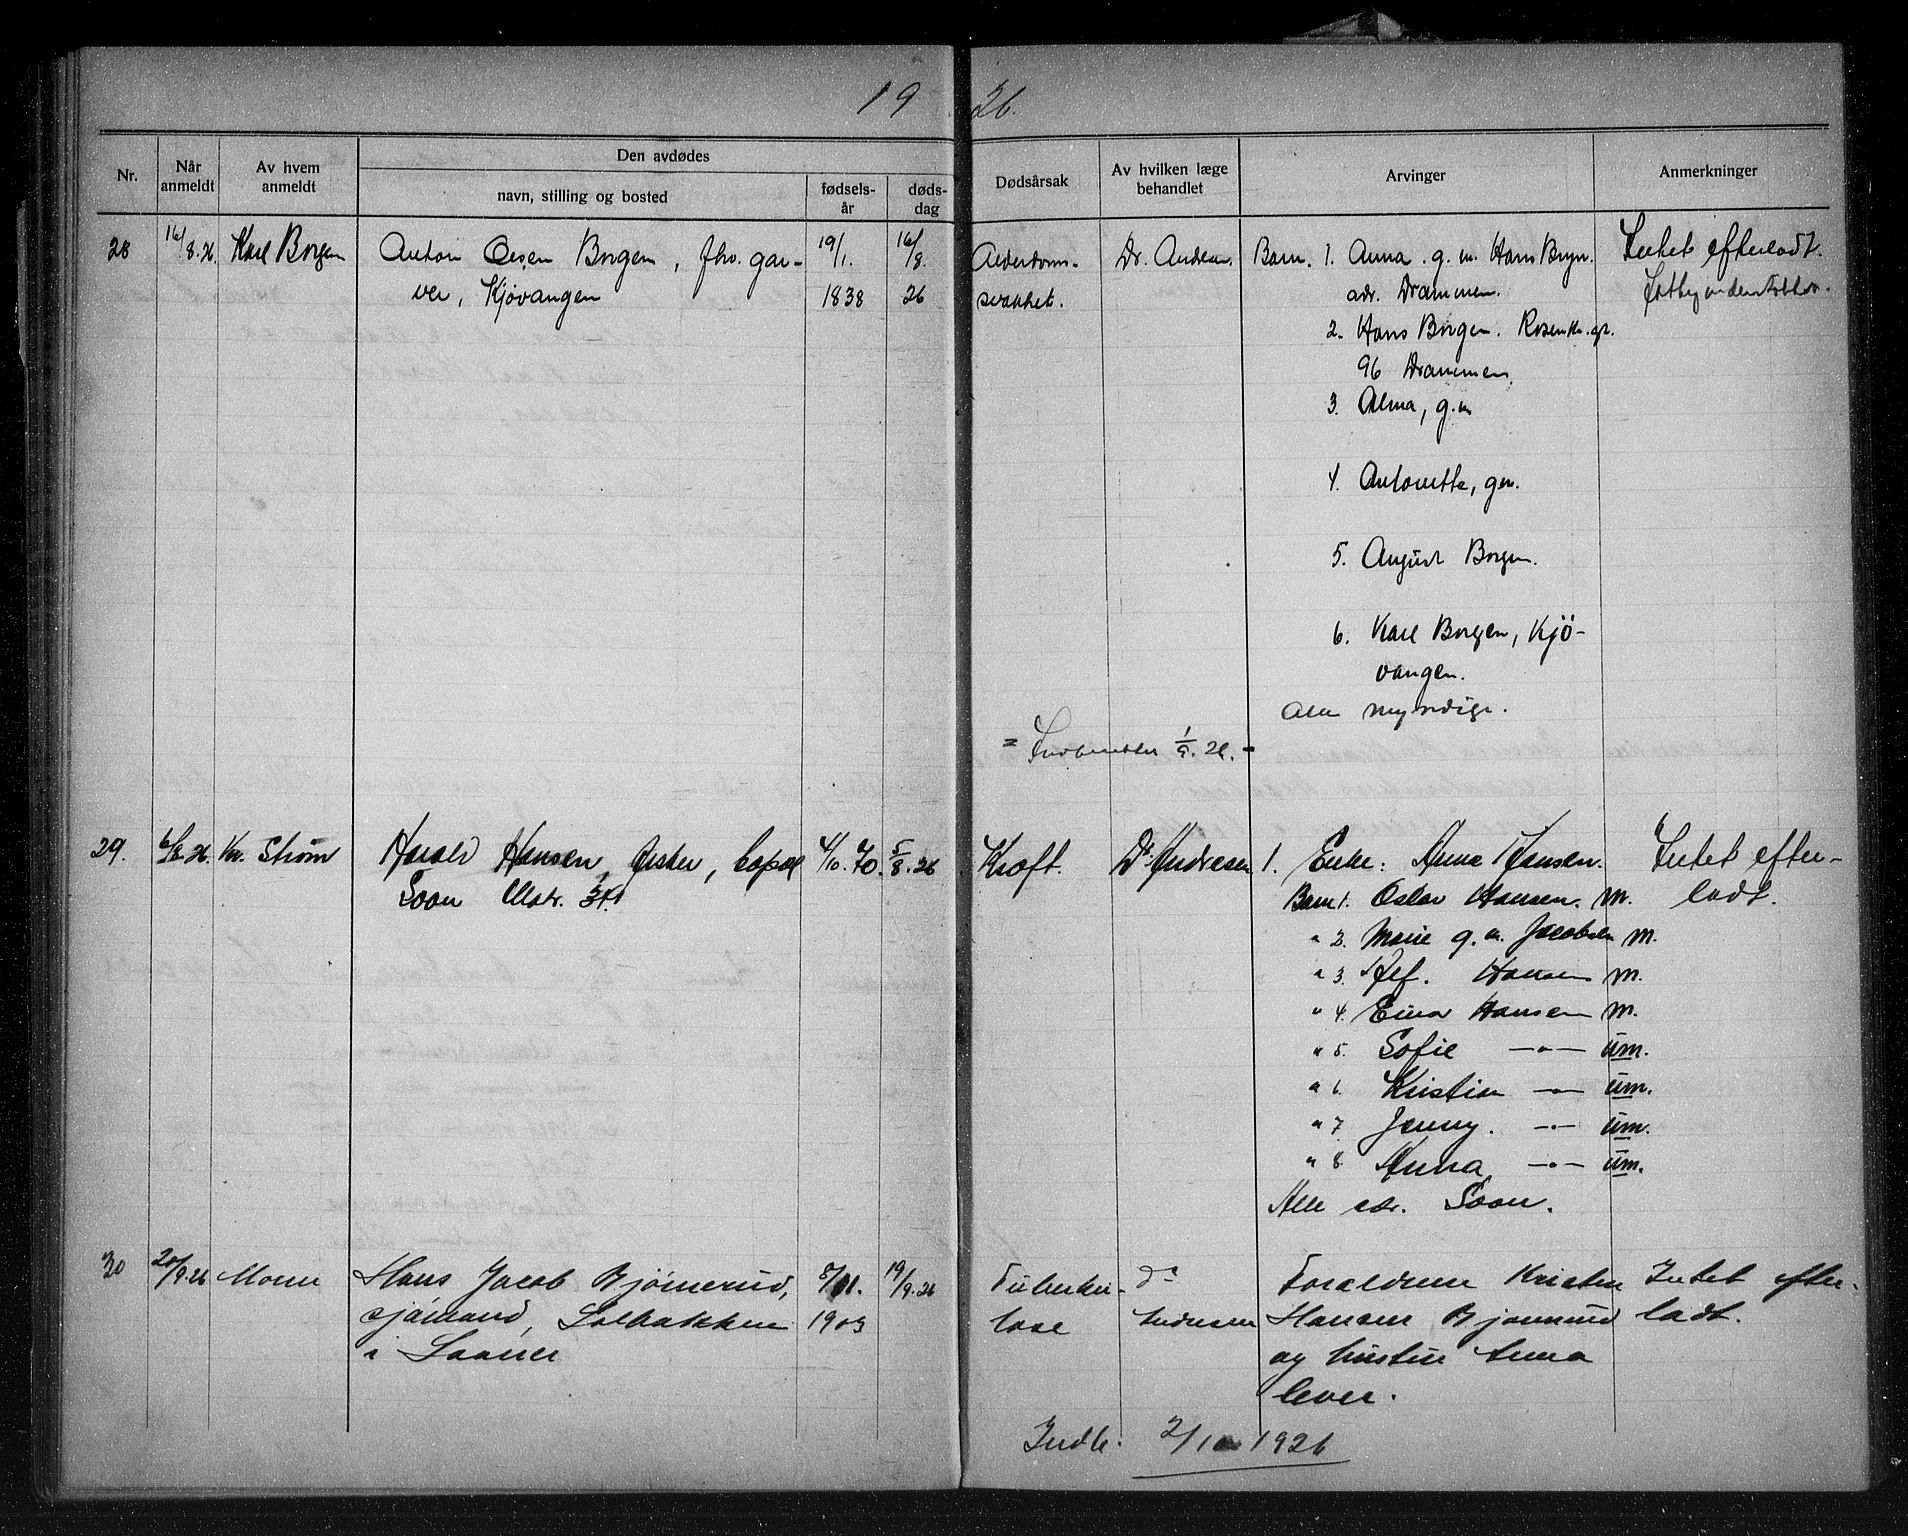 19 26.
Nr.
Når anmeldt
Av hvem anmeldt
Den avdødes
navn, stilling og bosted
fødsels-år
døds-dag
Dødsårsak
Av hvilken læge behandlet
Arvinger
Anmerkninger
28
16/8.26.
Karl Borgen
Anton Olsen Borgen, fhv. gar-
ver, Kjøvangen
19/1.
1838
16/8.
26
Alderdoms-
svakhet.
Dr. Andresen.
Barn. 1. Anna. g. m. Hans Bryn.
adr. Drammen.
2. Hans Borgen. Rosenkr. gt.
96 Drammen.
3. Alma, g. m
4. Antonette, gm.
5. August Borgen.
6. Karl Borgen, Kjø-
vangen.
Alle myndige.
Intet efterladt.
= Indberettet 1/9. 26. =
29.
6/8 26.
Kr. Strøm
Harald Hansen, fisker,
Soon Matr. 31.
4/10. 70.
5/8. 26
Kræft.
Dr Andresen
1. Enke: Anna Hansen.
Barn 1. Oskar Hansen. M.
" 2. Marie g. m. Jacobsen M.
" 3. Alf. Hansen M.
" 4. Einar Hansen M.
" 5. Sofie —"— um.
" 6. Kristian —"— um.
" 7. Jenny. —"— um.
" 8. Anna —"— um.
Alle adr. Soon.
Intet efter-
ladt.
30
20/9.26
Moren
Hans Jacob Bjørnerud,
sjømand, Solbakken
i Saaner
8/11.
1903
19/9.26
Tuberku-
lose
Dr
Andresen
Forældrene Kristen
Hansen Bjørnerud
og hustru Anna
lever.
Intet efter-
ladt.
Indb. 2/10 1926